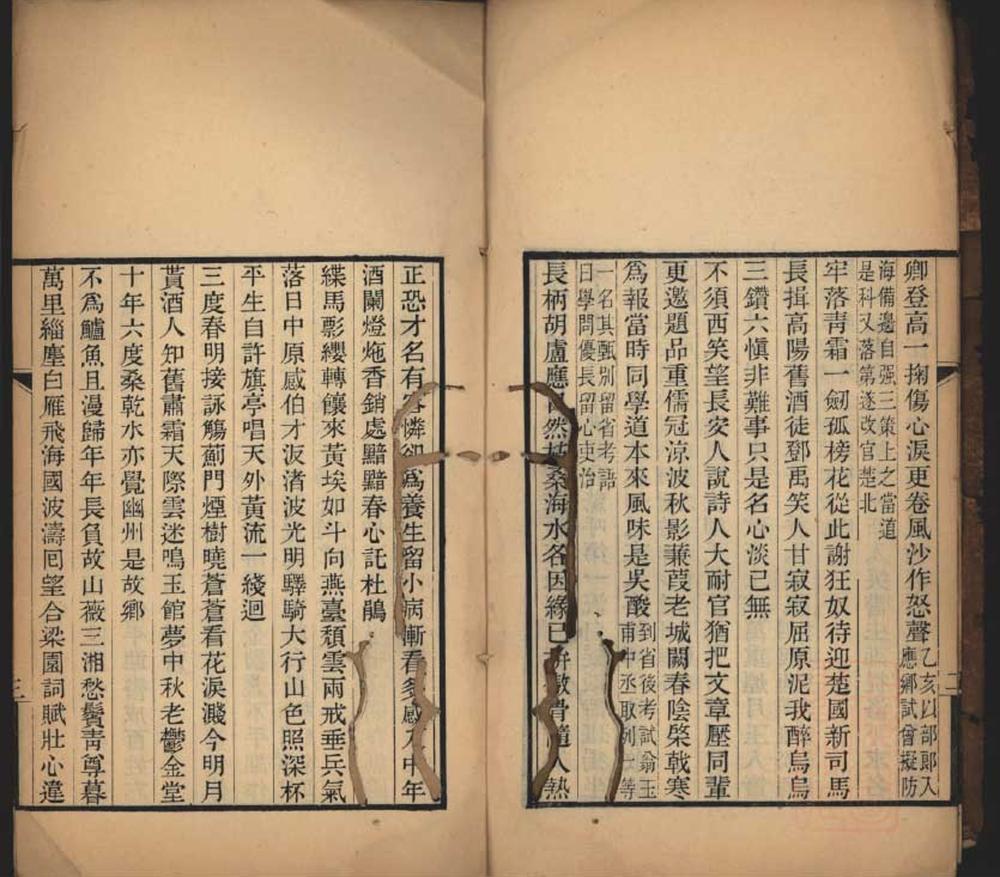 卿登高一掬傷心淚更卷風沙作怒聲
乙亥以部郎入
應鄉試曾擬防
海備邊自强三策上之當道
是科又落第遂改官楚北
牢落青霜一劒孤榜花從此謝狂奴待迎楚國新司馬
長揖高陽舊酒徒鄧禹笑人甘寂寂屈原泥我醉烏烏
三鑽六愼非難事只是名心淡已無
不須西笑望長安人說詩人大耐官猶把文章壓同輩
更邀題品重儒冠涼波秋影蒹葭老城闕春陰棨戟寒
爲報當時同學道本來風味是吳酸
到省後考試翁玉
甫中丞取列一等
一名其甄別留省考語
曰學問優長留心吏治
長柄胡盧應然桑海水名因緣已傲骨隨人熱
正恐才名有客憐卻爲養生留小病漸看多感入中年
酒闌燈灺香銷處黯黯春心託杜鵑
緤馬影纓轉饟來黃埃如斗向燕臺頹雲兩戒垂兵氣
落日中原感伯才汳渚波光明驛騎大行山色照深杯
平生自許旗亭唱天外黃流一綫迴
三度春明接詠觴薊門煙樹曉蒼蒼看花淚濺今明月
貰酒人知舊肅霜天際雲迷鳴玉館夢中秋老鬱金堂
十年六度桑乾水亦覺幽州是故鄉
不爲鱸魚且漫歸年年長負故山薇三湘愁鬢靑尊暮
萬里緇塵白雁飛海國波濤囘望合梁園詞賦壯心違
二
三